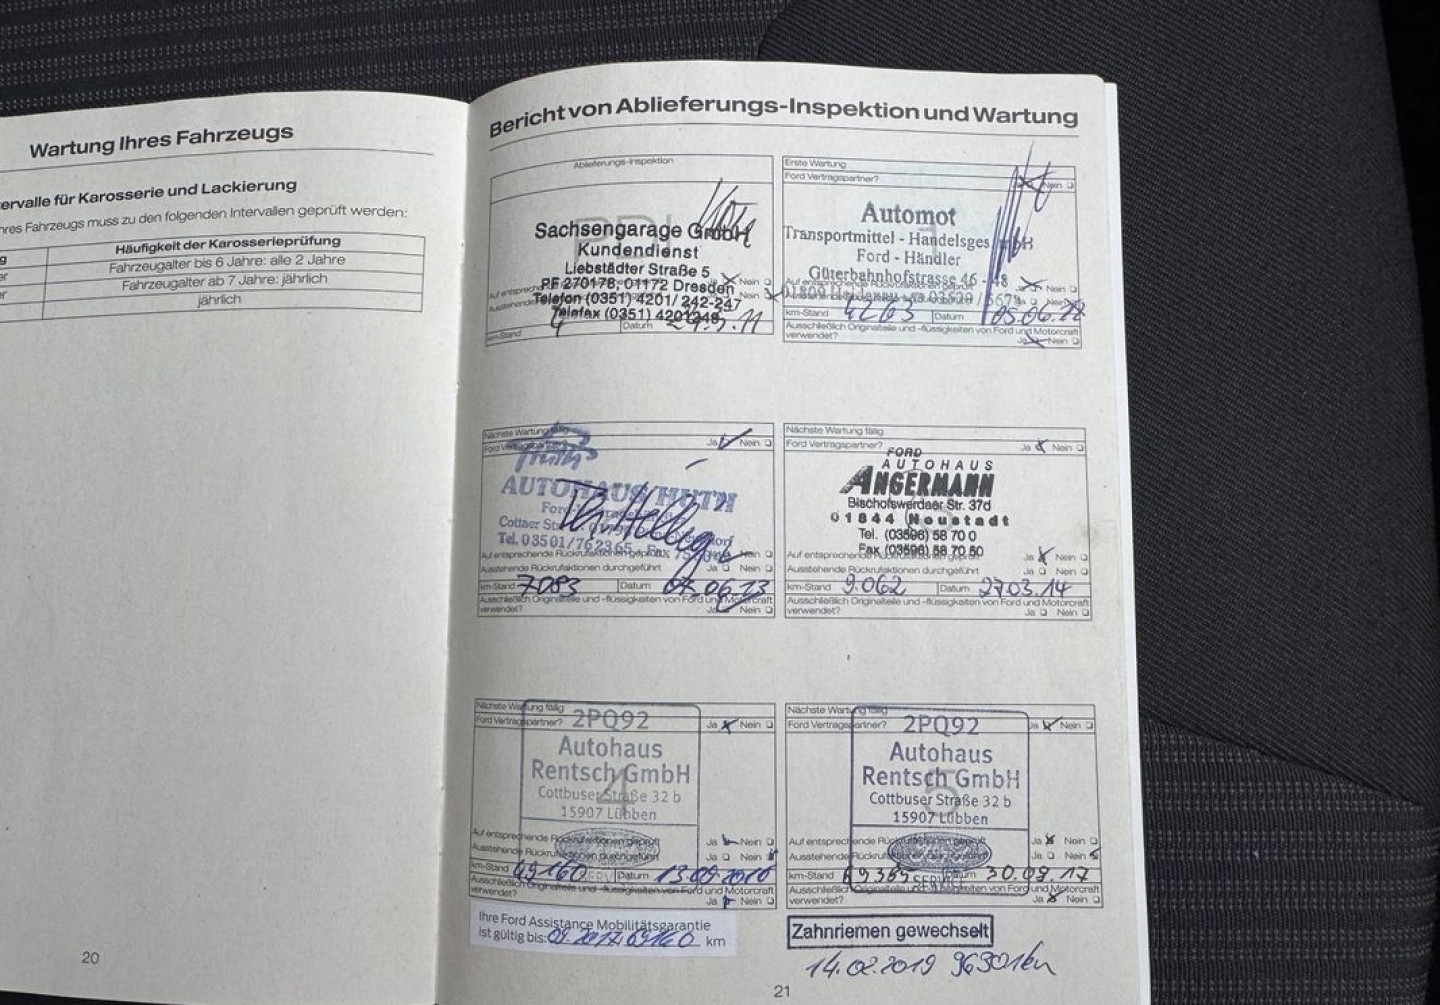 Wartung Ihres Fahrzeugs
ervalle für Karosserie und Lackierung
hres Fahrzeugs muss zu den folgenden Intervallen geprüft werden:
g Häufigkeit der Karosserieprüfung
er Fahrzeugalter bis 6 Jahre: alle 2 Jahre
er Fahrzeugalter ab 7 Jahre: jährlich
jährlich
20
Bericht von Ablieferungs-Inspektion und Wartung
Ablieferungs-Inspektion
Sachsengarage GmbH
Kundendienst
Liebstädter Straße 5
PF 270178, 01172 Dresden
Nein
Telefon (0351) 4201/ 242-247
Telefax (0351) 4201249
km-Stand 4 Datum
Erste Wartung
Ford Vertragspartner? Nein
Automot
Transportmittel - Handelsges. mbH
Ford - Händler
Güterbahnhofstrasse 46 - 48
Nein
km-Stand 4263 Datum 05.06.
Ausschließlich Originalteile und -flüssigkeiten von Ford und Motorcraft
verwendet? Ja Nein
Nächste Wartung fällig
Ford Vertragspartner? Ja Nein
AUTOHAUS HUTH
Cottaer
Tel. 03501/762365
Auf entsprechende Rückrufaktionen geprüft Nein
Ausstehende Rückrufaktionen durchgeführt Ja Nein
km-Stand 7083 Datum 07.06.13
Ausschließlich Originalteile und -flüssigkeiten von Ford und Motorcraft
verwendet? Ja Nein
Nächste Wartung fällig
Ford Vertragspartner? Ja Nein
FORD
AUTOHAUS
ANGERMANN
Bischofswerdaer Str. 37d
01844 Neustadt
Tel. (03596) 58 70 0
Fax (03596) 58 70 50
Auf entsprechende Ja Nein
Ausstehende Rückrufaktionen durchgeführt Ja Nein
km-Stand 9.062 Datum 27.03.14
Ausschließlich Originalteile und -flüssigkeiten von Ford und Motorcraft
verwendet? Ja Nein
Nächste Wartung fällig
Ford Vertragspartner? Ja Nein
2PQ92
Autohaus
Rentsch GmbH
Cottbuser Straße 32 b
15907 Lübben
4
Auf entsprechende Rückrufaktionen geprüft Ja Nein
Ausstehende Rückrufaktionen durchgeführt Ja Nein
km-Stand 49160 Datum 13.09.2016
Ausschließlich Originalteile und -flüssigkeiten von Ford und Motorcraft
verwendet? Ja Nein
Ihre Ford Assistance Mobilitätsgarantie
ist gültig bis: 09.2017/69160 km
Nächste Wartung fällig
Ford Vertragspartner? Ja Nein
2PQ92
Autohaus
Rentsch GmbH
Cottbuser Straße 32 b
15907 Lübben
5
Auf entsprechende Rückrufaktionen geprüft Ja Nein
Ausstehende Rückrufaktionen durchgeführt Ja Nein
km-Stand 69365 Datum 30.09.17
Ausschließlich Originalteile und -flüssigkeiten von Ford und Motorcraft
verwendet? Ja Nein
Zahnriemen gewechselt
14.02.2019 96301km
21